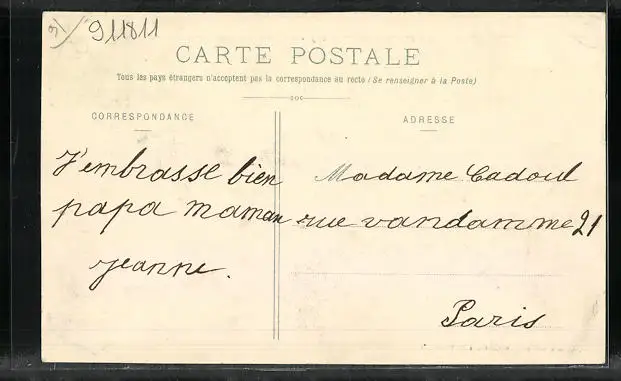 911811
CARTE POSTALE
Tous les pays étrangers n'acceptent pas la correspondance au recto (Se renseigner à la Poste)
CORRESPONDANCE
ADRESSE
J'embrasse bien
papa maman
jeanne.
Madame Cadoul
rue vandamme 21
Paris